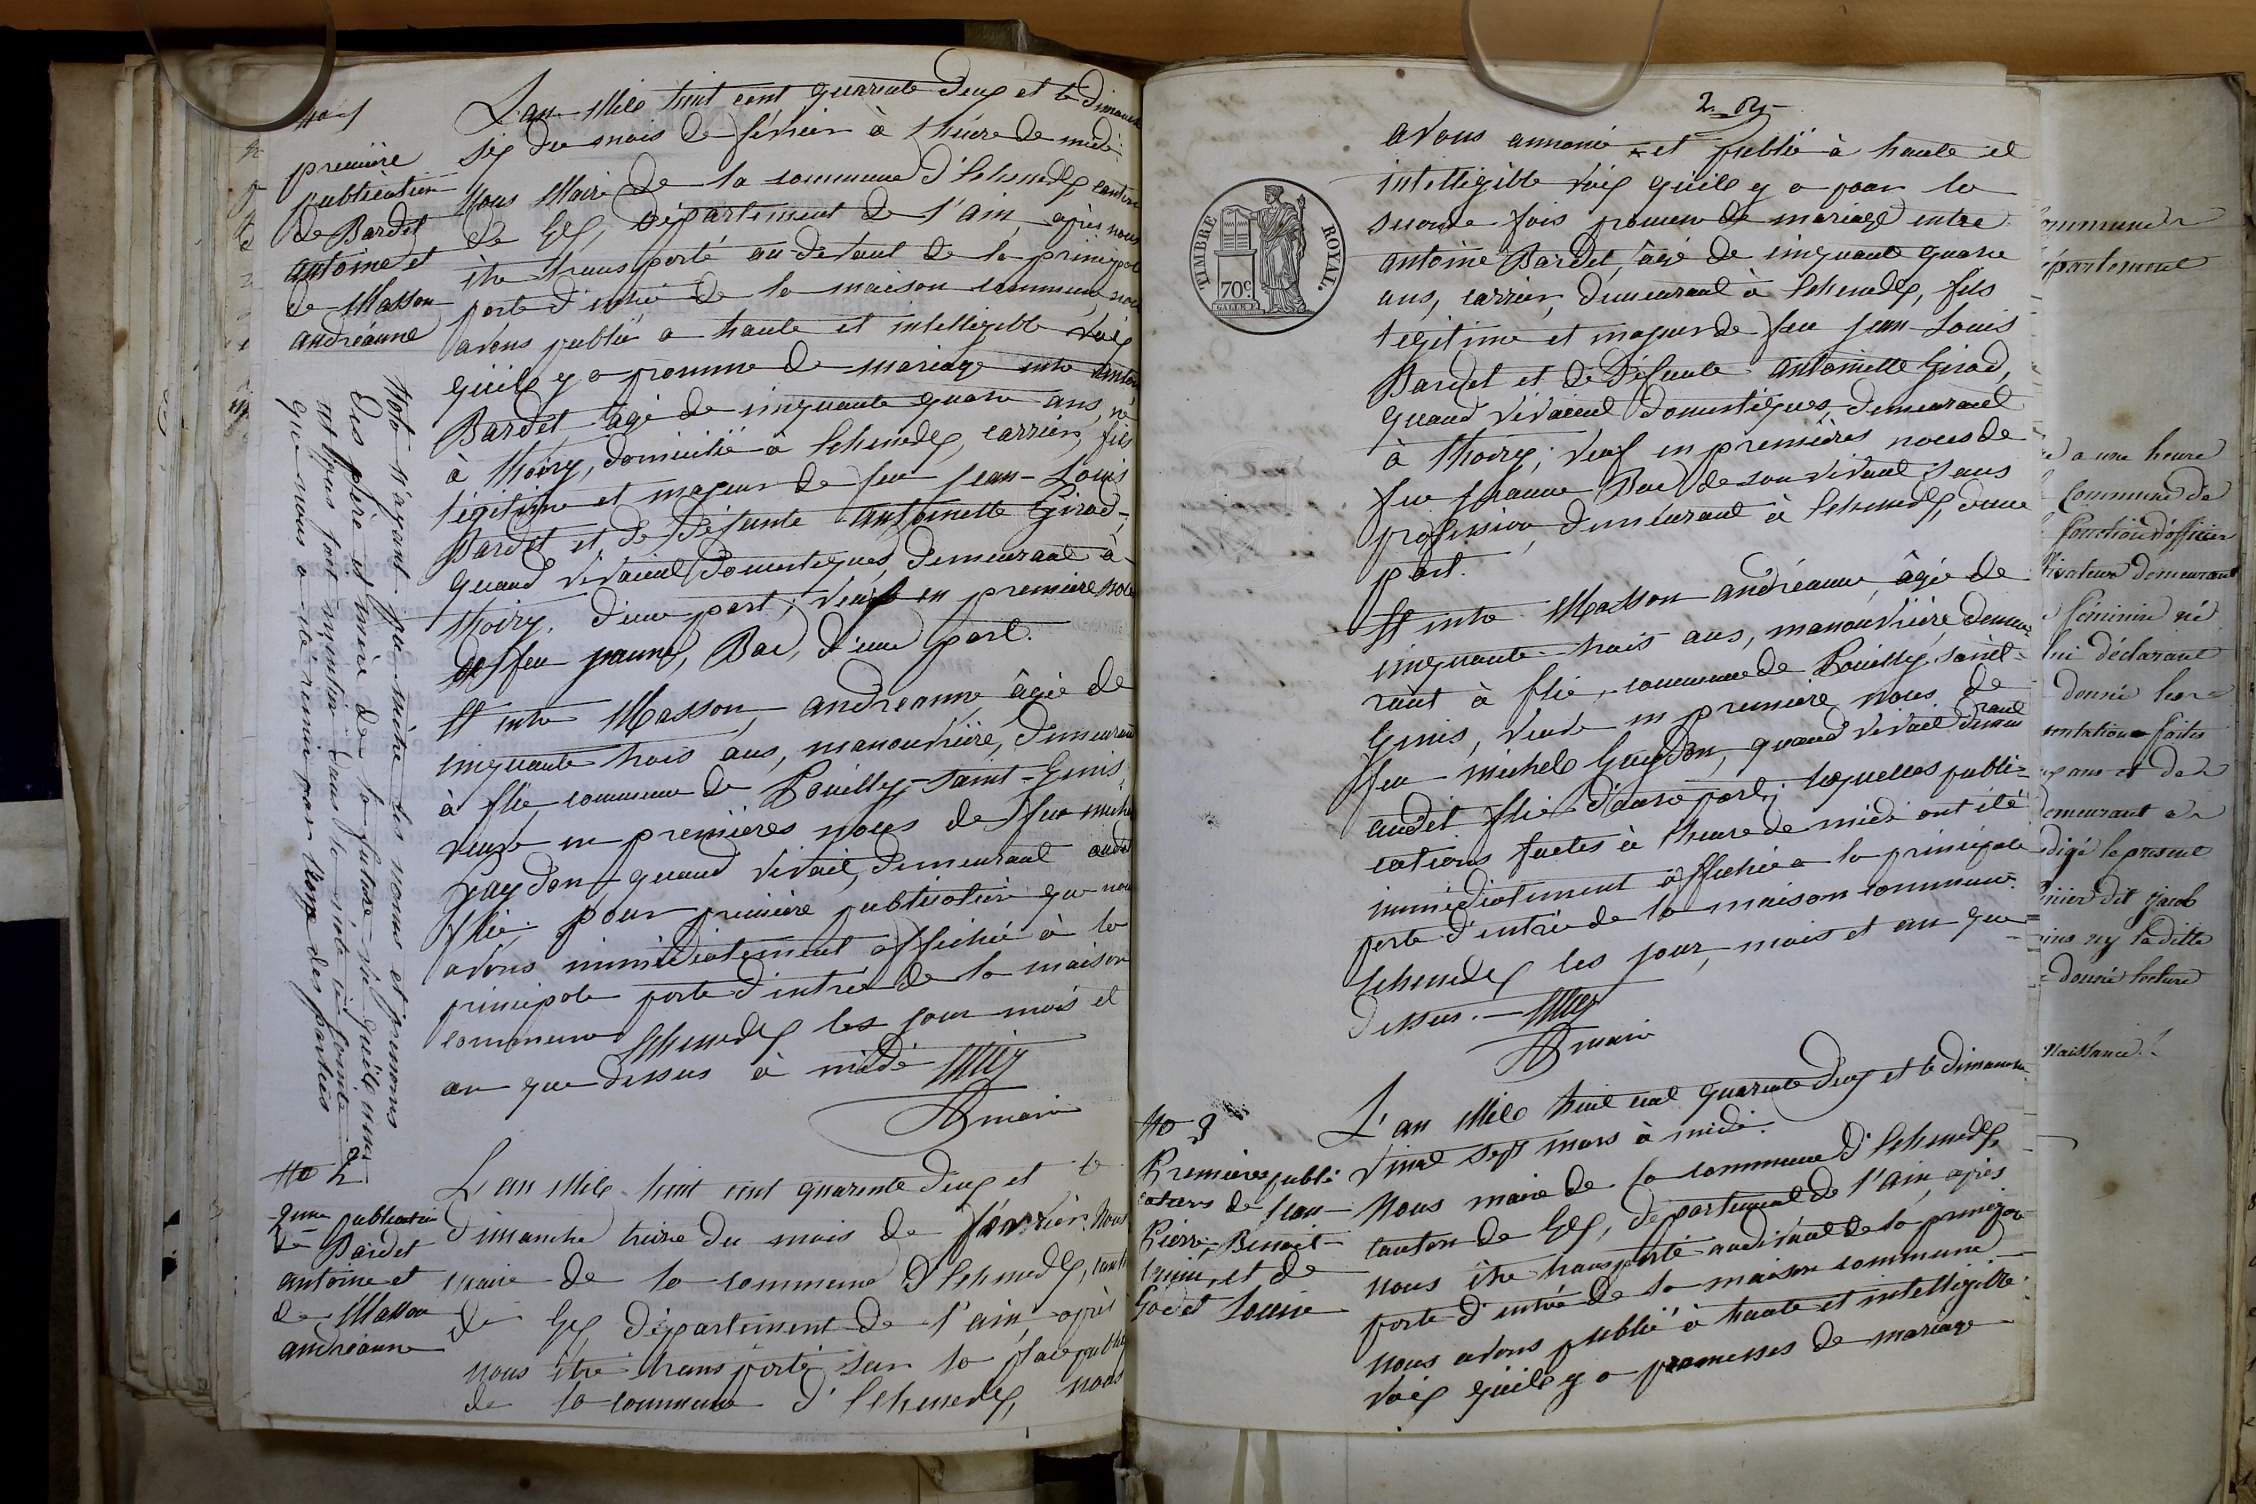 No 1
première
publication
de Bardet
antoine et
de Masson
andréanne
L'an Mile huit cent quarante deux et le dimanche
six du mois de février à l'heure de midi.
Nous Maire de la commune d'Echenevex canton
de Gex, département de l'ain, après nous
être transporté au devant de la principale
porte d'entrée de la maison commune, nous
avons publié a haute et intelligible voix
qu'ile y a promme de mariage entre Antoine
Bardet âgé de cinquante quatre ans, né
à Thoiry, domicilié à Echenevex, carrier, fils
légitime et majeur de feu Jean-Louis
Bardet et de Défunte antoinette Girod,
quand vivaient Domestiques, demeurant à
Thoiry. d'une part; veuf en première noce
de feu jeanne, Bac, d'une part.
Et entre Masson, andréanne, âgée de
cinquante trois ans, manouvrière, demeurant
à flie, commune de Pouilly-Saint-Genis,
veuve en premières noces de feu michel
Guydon, quand vivait, demeurant audit
flie. pour première publication que nous
avons immédiatement affichée à la
principale porte d'entrée de la maison
commune Echenevex les jour mois et
an que dessus à midi
maire
Nota n'ayant pu mettre les noms et prénoms
des père et mère de la future vu qu'ils
ne sont mention dans la note ci jointe
que nous a été remise par l'une des parties
No 2
2eme publication
de Bardet
antoine et
de Masson
andréanne
L'an Mile huit cent quarante deux et le
dimanche treize du mois de février. Nous
maire de la commune d'Echenevex, canton
de Gex, département de l'ain, après
nous être transporté sur la place publique
de la commune d'Echenevex, nous
2
avons annoncé et publié à haute et
intelligible voix qu'ile y a pour la
seconde fois promme de mariage entre
antoine Bardet, âgé de cinquante quatre
ans, carrier, demeurant à Echenevex, fils
légitime et majeur de feu Jean-Louis
Bardet et de Défunte Antoinette Girod,
quand vivaient Domestiques, demeurant
à Thoiry; veuf en premières noces de
feu Jeanne Bac de son vivant sans
profession, demeurant à Echenevex, d'une
part.
Et entre Masson andréanne, âgée de
cinquante-trois ans, manouvrière demeu-
rant à flie, commune de Pouilly saint-
Genis, veuve en première noces de
feu michel Guydon, quand vivait demeurant
audit flie d'autre part; lesquelles publi-
cations faites à l'heure de midi ont été
immédiatement affichée a la principale
porte d'entrée de la maison commune.
Echenevex les jour, mois et an que
dessus.
maire
TIMBRE ROYAL.
70c
No 3
Premières publi
cations de Jean-
Pierre, Benoit
et de
Godet Louise
L'an Mile huit cent quarante deux et le dimanche
vint sept mars à midi.
Nous maire de la commune d'Echenevex,
canton de Gex, département de l'ain, après
nous être transporté audevant de la principale
porte d'entrée de la maison commune
nous avons publié à haute et intelligible
voix qu'ile y a promesses de mariage
commune
département
a une heure
commune de
fonction d'officier
demeurant
féminin né
lui déclarant
donné les
faites
ans et de
demeurant à
rédigé le présent
dit jacob
ny ladite
donné lecture
Naissance.